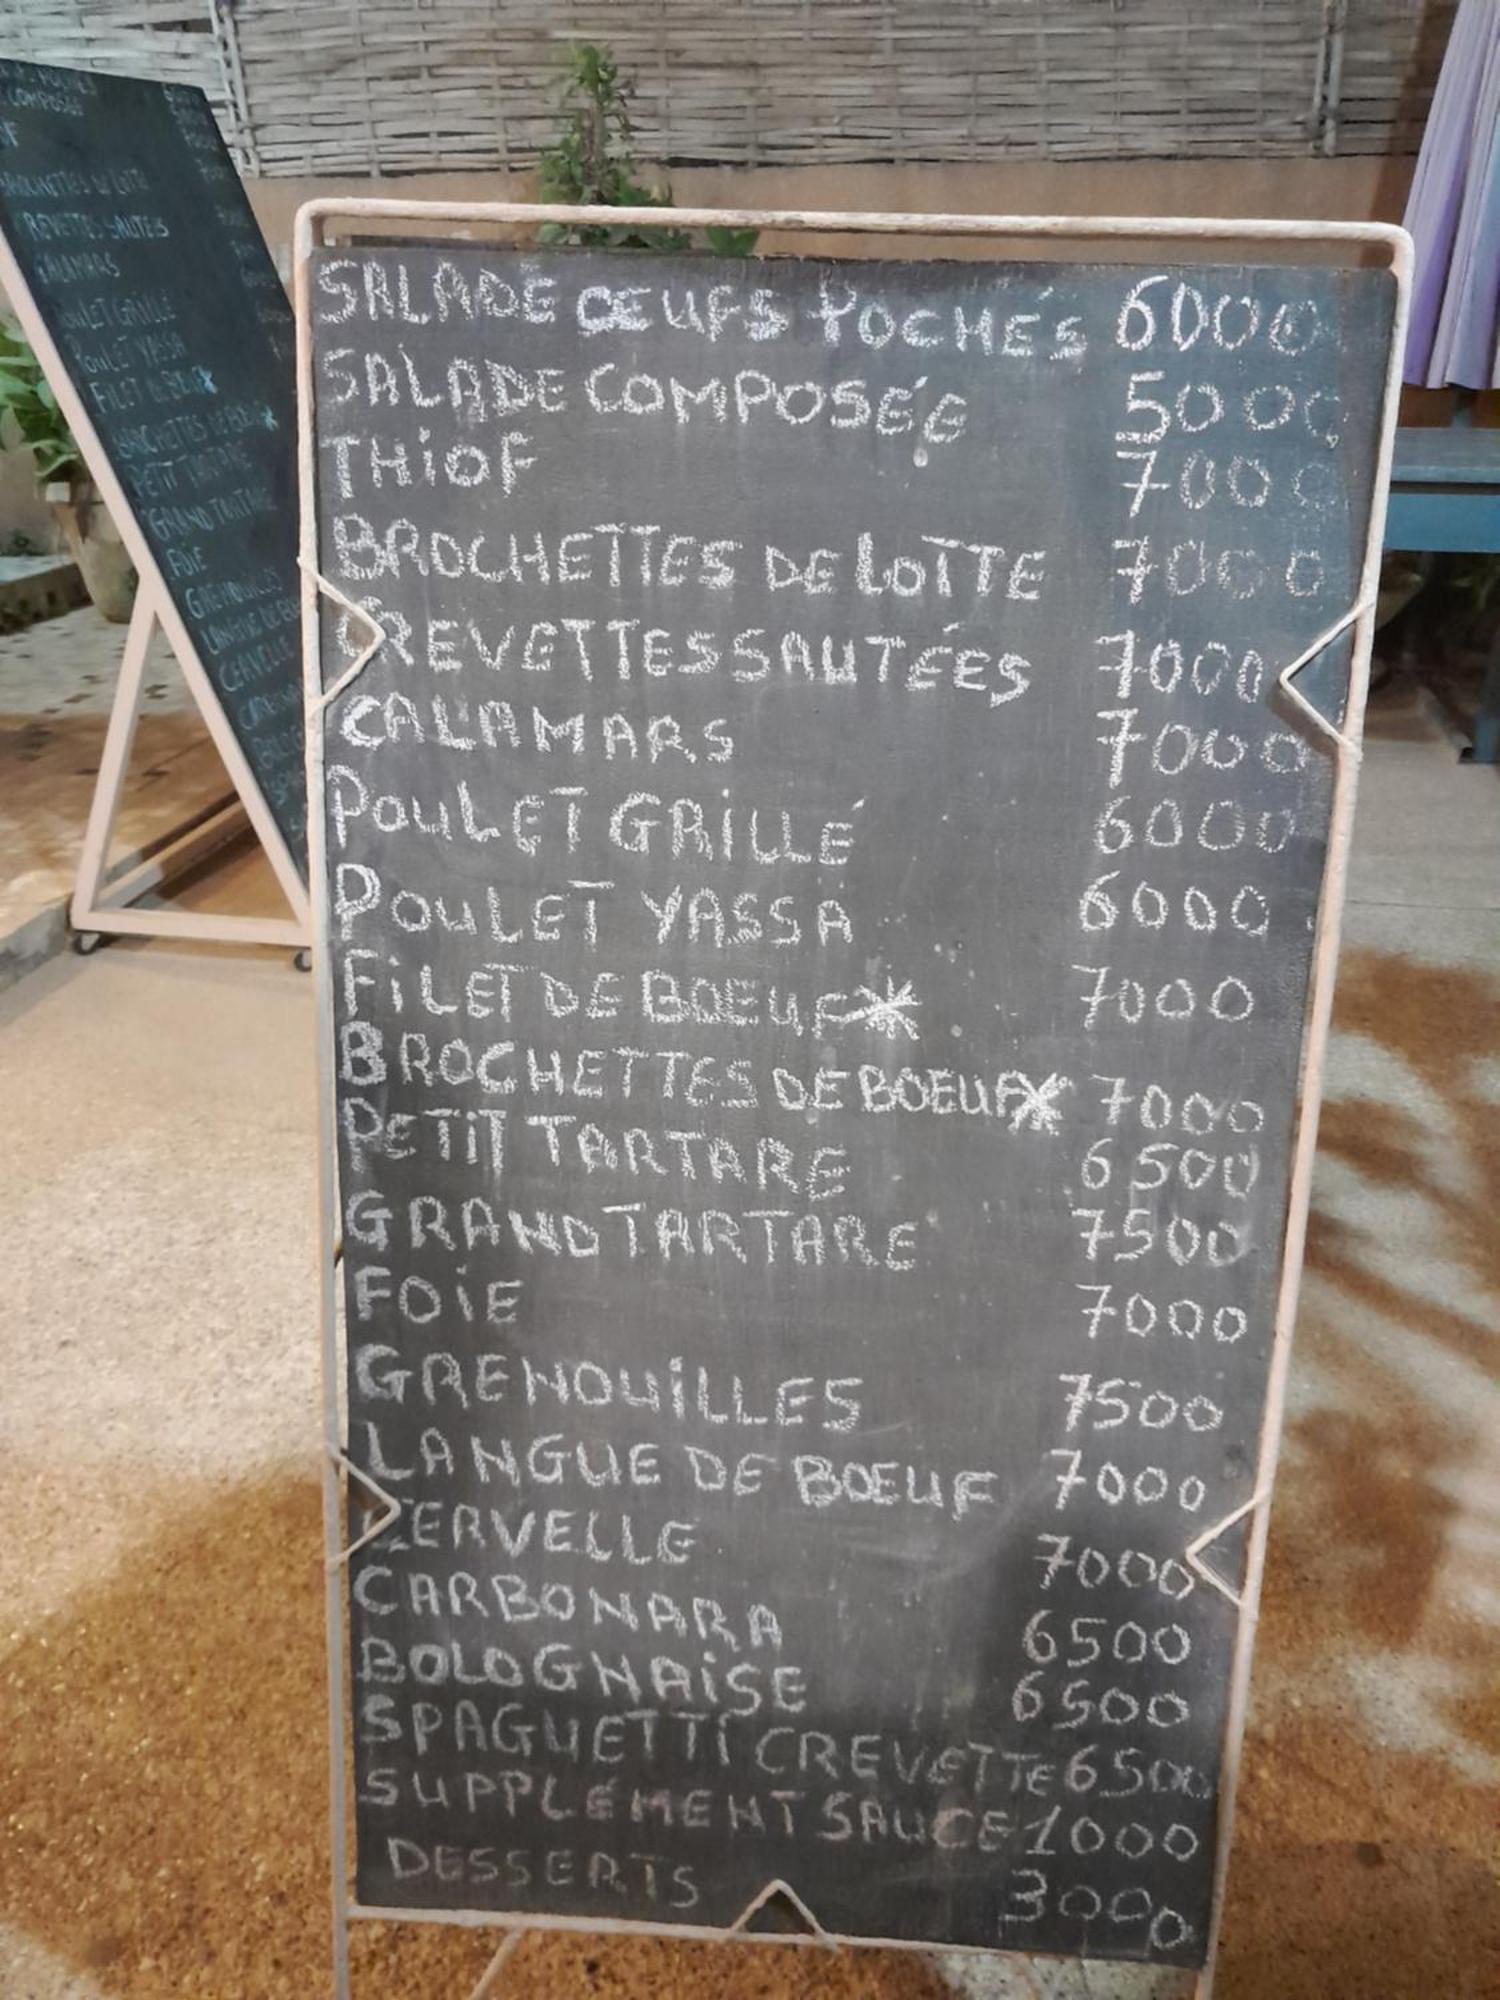 SALADE ŒUFS POCHÉS 6000
SALADE COMPOSÉE 5000
THIOF 7000
BROCHETTES DE LOTTE 7000
CREVETTES SAUTÉES 7000
CALAMARS 7000
POULET GRILLÉ 6000
POULET YASSA 6000
FILET DE BOEUF* 7000
BROCHETTES DE BOEUF* 7000
PETIT TARTARE 6500
GRAND TARTARE 7500
FOIE 7000
GRENOUILLES 7500
LANGUE DE BOEUF 7000
CERVELLE 7000
CARBONARA 6500
BOLOGNAISE 6500
SPAGUETTI CREVETTE 6500
SUPPLÉMENT SAUCE 1000
DESSERTS 3000
COMPOSÉE
BROCHETTES DE LOTTE
CREVETTES SAUTÉES
CALAMARS
POULET GRILLÉ
POULET YASSA
FILET DE BOEUF*
BROCHETTES DE BOEUF*
PETIT TARTARE
GRAND TARTARE
FOIE
GRENOUILLES
LANGUE DE